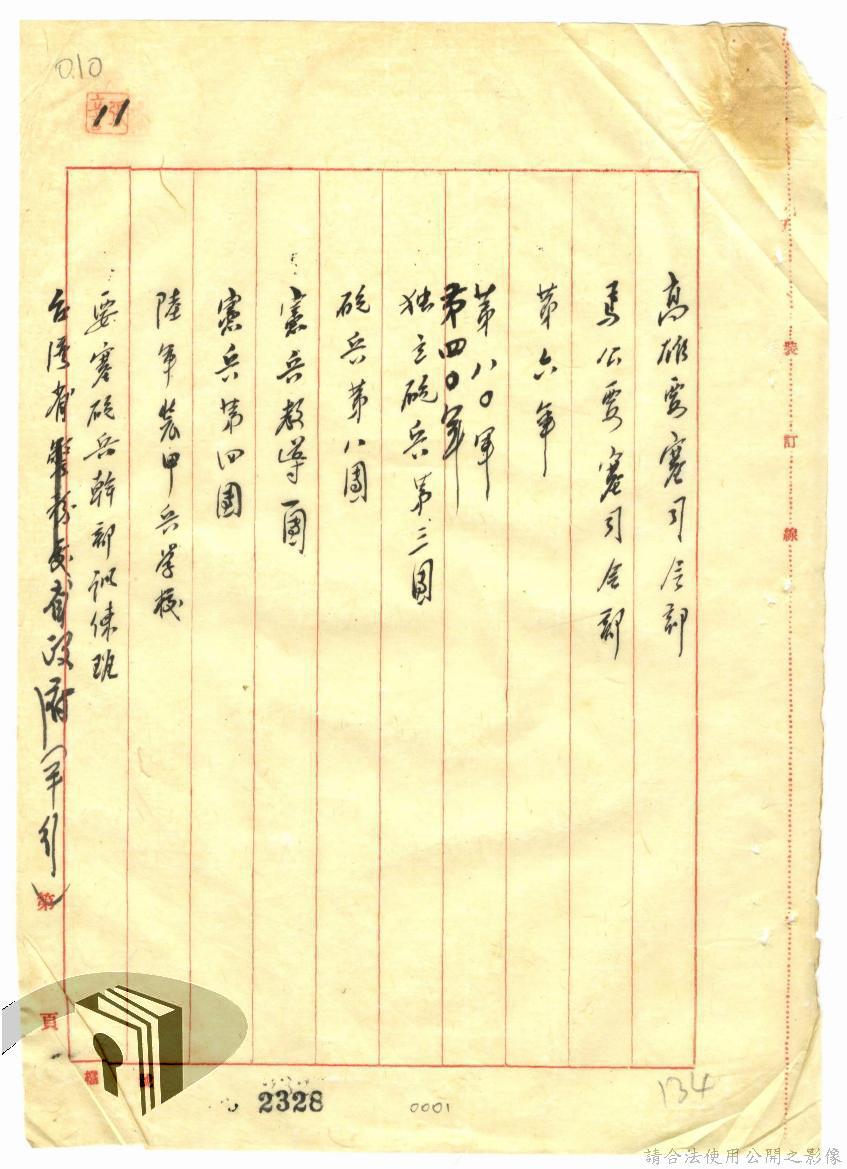 010
11
裝
訂
線
高雄要塞司令部
馬公要塞司令部
第六軍
第八〇軍
第四〇軍
独立砲兵第三團
砲兵第八團
憲兵教導一團
憲兵第四團
陸軍裝甲兵学校
要塞砲兵幹部訓練班
台湾省
省政府(另行)
第
頁
檔
2328
0001
134
請合法使用公開之影像